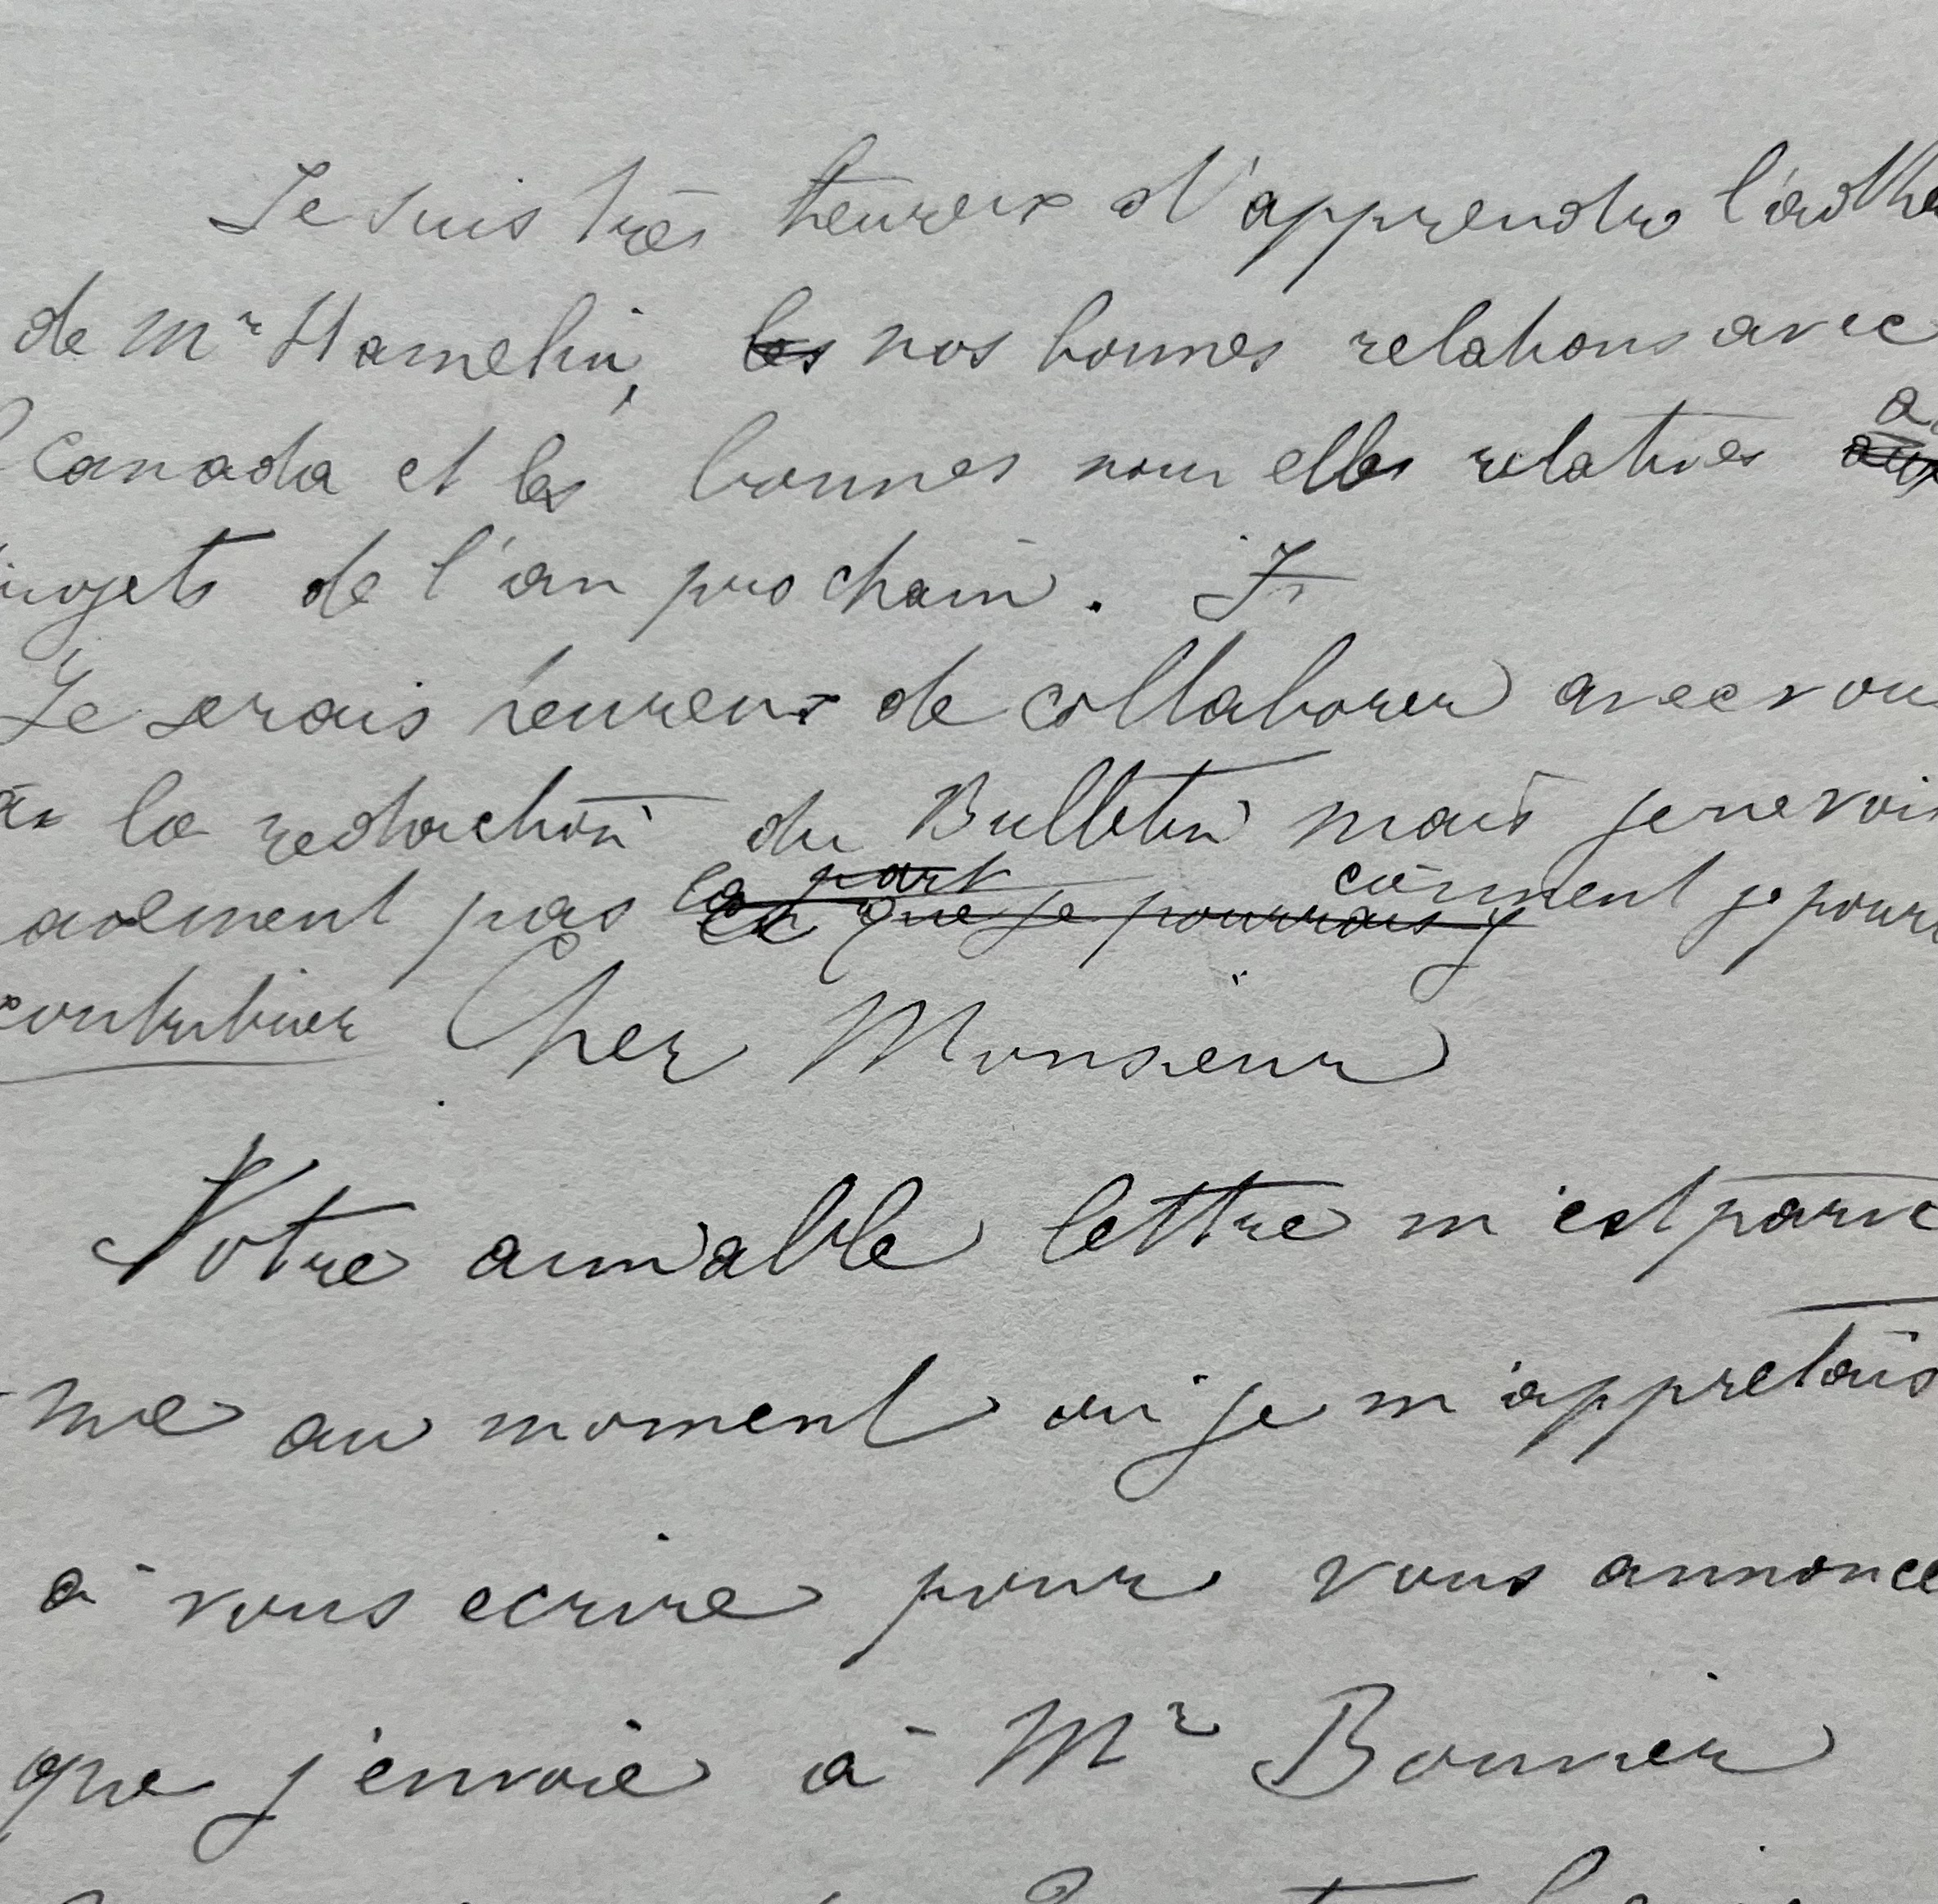 Je suis très heureux d'apprendre l'adhé
de Mr Hamelin, les nos bonnes relations avec
Canada et les bonnes nouvelles relatives aux
projets de l'an prochain. Je
Je serais heureux de collaborer avec vous
à la redaction du Bulletin mais je ne vois
pas la part comment je pourr
ce que je pourrais y
contribuer Cher Monsieur
Votre aimable lettre m'est parve
me au moment ou je m'appretais
à vous ecrire pour vous annonce
que j'envoie à Mr Bonnier